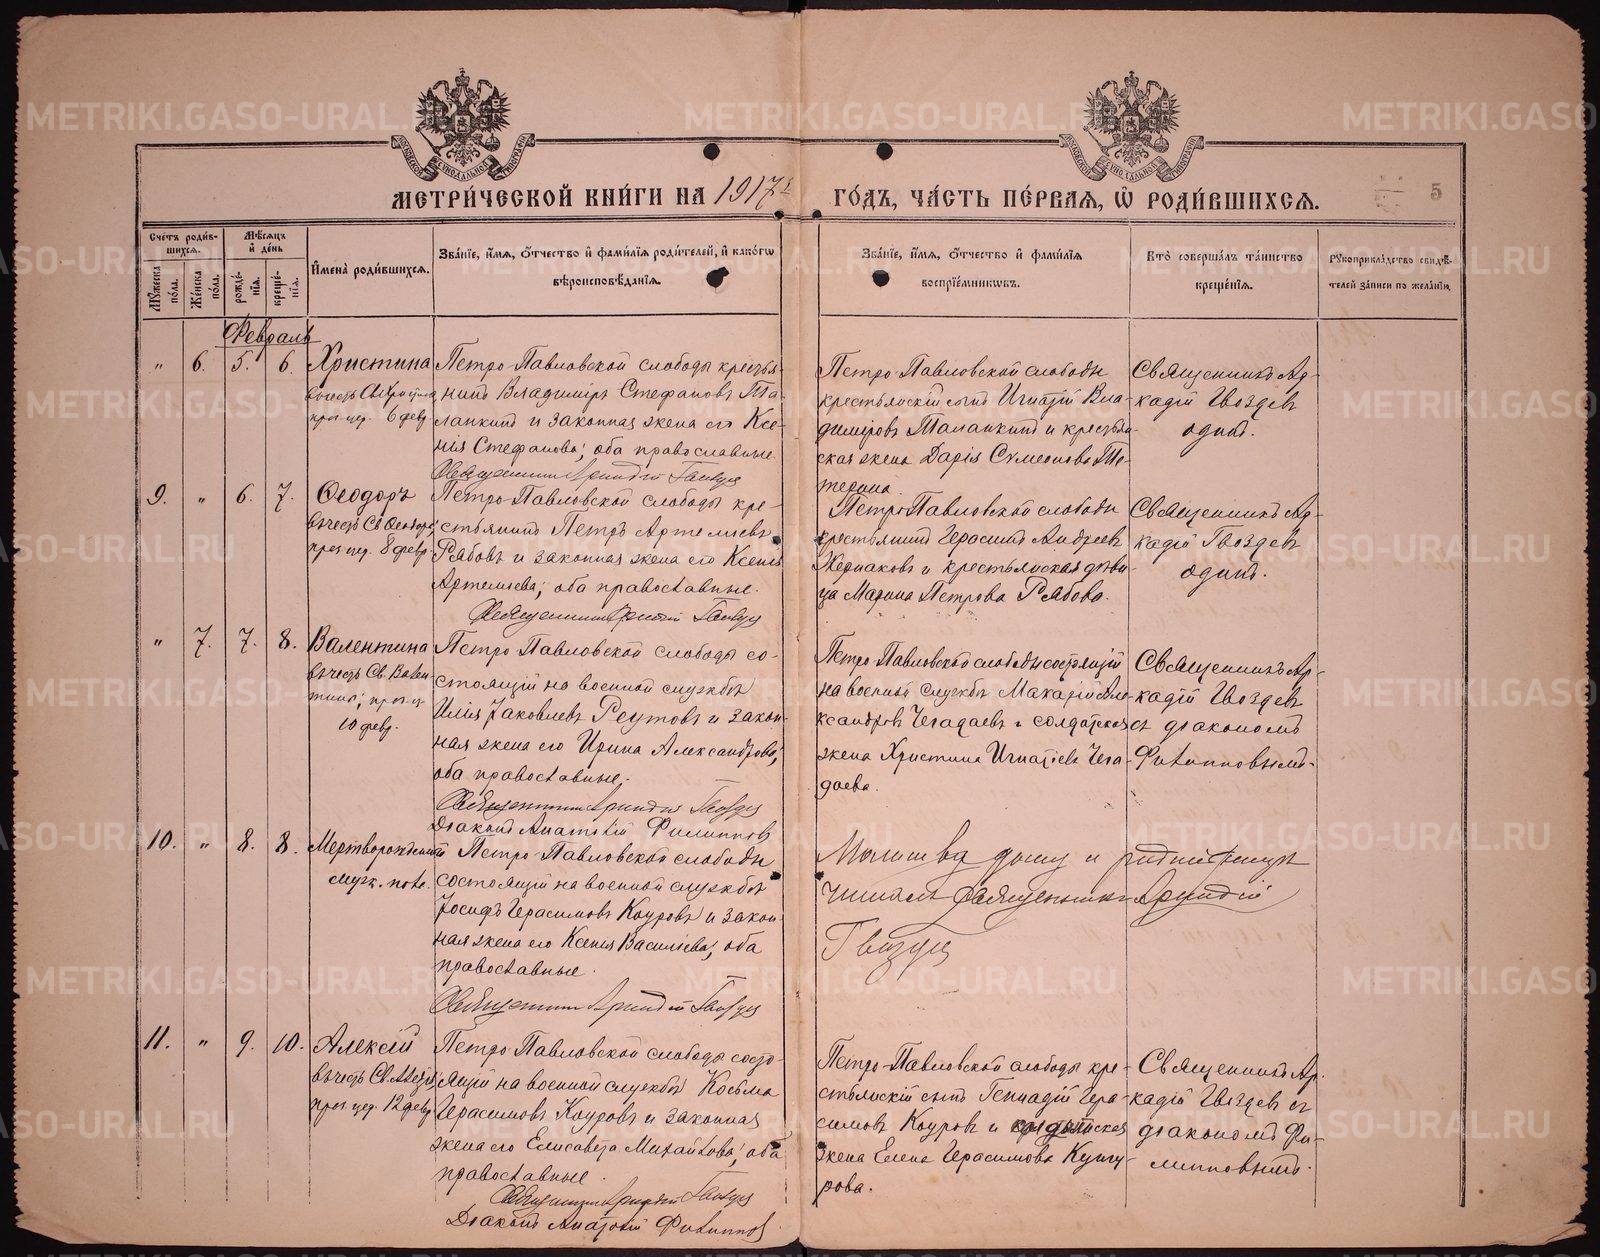 МЕТРИ́ЧЕСКОЙ КНИ́ГИ НА 1917 г.
ГО́ДЪ, ЧА́СТЬ ПЕ́РВАЯ, Ѽ РОДИ́ВШИХСЯ.
5
Сче́тъ роди́вшихся.
Му́жеска по́ла.
Же́нска по́ла.
Мѣ́сяцъ и де́нь
рожде́нія.
креще́нія.
И́мена̀ роди́вшихся.
Зва́нїе, и́мя, о́тчество и фами́лїя роди́телей, и како́гѡ
вѣроисповѣ́данїя.
Зва́нїе, и́мя, о́тчество и фами́лїя
воспрїе́мниковъ.
Кто̀ соверша́лъ та́инство
креще́нїя.
Рукоприкла́дство свидѣ́-
телей за́писи по жела́нїю.
Февраль
„ 6. 5. 6.
Христина
въ честь Св. Христины
праз. цер. 6 февр.
Петро-Павловской слободы крестья-
нинъ Владиміръ Стефановъ Та-
ланкинъ и законная жена его Ксе-
нія Стефанова; оба православные.
Священникъ Аркадій Гвоздевъ
Петро-Павловской слободы
крестьянскій сынъ Игнатій Вла-
диміровъ Таланкинъ и крестьян-
ская жена Дарія Сумеонова Те-
терина.
Священникъ Ар-
кадій Гвоздевъ
одинъ.
9. „ 6. 7.
Ѳеодоръ
въ честь Св. Ѳеодора,
праз. цер. 8 февр.
Петро-Павловской слободы кре-
стьянинъ Петръ Артемьевъ
Рябовъ и законная жена его Ксенія
Артемьева; оба православные.
Священникъ Аркадій Гвоздевъ
Петро-Павловской слободы
крестьянинъ Герасимъ Андреевъ
и крестьянская дѣви-
ца Марина Петрова Рябова.
Священникъ Ар-
кадій Гвоздевъ
одинъ.
„ 7. 7. 8.
Валентина
въ честь Св. Вален-
тины; праз. ц.
10 февр.
Петро-Павловской слободы со-
стоящій на военной службѣ
Илія Іаковлевъ Реутовъ и закон-
ная жена его Ирина Александрова;
оба православные.
Священникъ Аркадій Гвоздевъ
Діаконъ Анатолій Филипповъ
Петро-Павловской слободы состоящій
на военной службѣ Макарій Але-
ксандровъ Чегадаевъ и солдатская
жена Христина Игнатіева Чега-
даева.
Священникъ Ар-
кадій Гвоздевъ
съ діакономъ
Филипповымъ.
10. „ 8. 8.
Мертворожденный
муж. пола.
Петро-Павловской слободы
состоящій на военной службѣ
Іосифъ Герасимовъ Коуровъ и закон-
ная жена его Ксенія Василіева; оба
православные.
Священникъ Аркадій Гвоздевъ
Молитва дому и родильницѣ
читалъ Священникъ Аркадій
Гвоздевъ
11. „ 9. 10.
Алексій
въ честь Св. Алексія,
праз. цер. 12 февр.
Петро-Павловской слободы состо-
ящій на военной службѣ Косьма
Герасимовъ Коуровъ и законная
жена его Елисавета Михайлова; оба
православные.
Священникъ Аркадій Гвоздевъ
Діаконъ Анатолій Филипповъ
Петро-Павловской слободы кре-
стьянскій сынъ Геннадій Гера-
симовъ Коуровъ и
жена Елена Герасимова Кунгу-
рова.
Священникъ Ар-
кадій Гвоздевъ съ
діакономъ Фи-
липповымъ.
METRIKI.GASO-URAL.RU